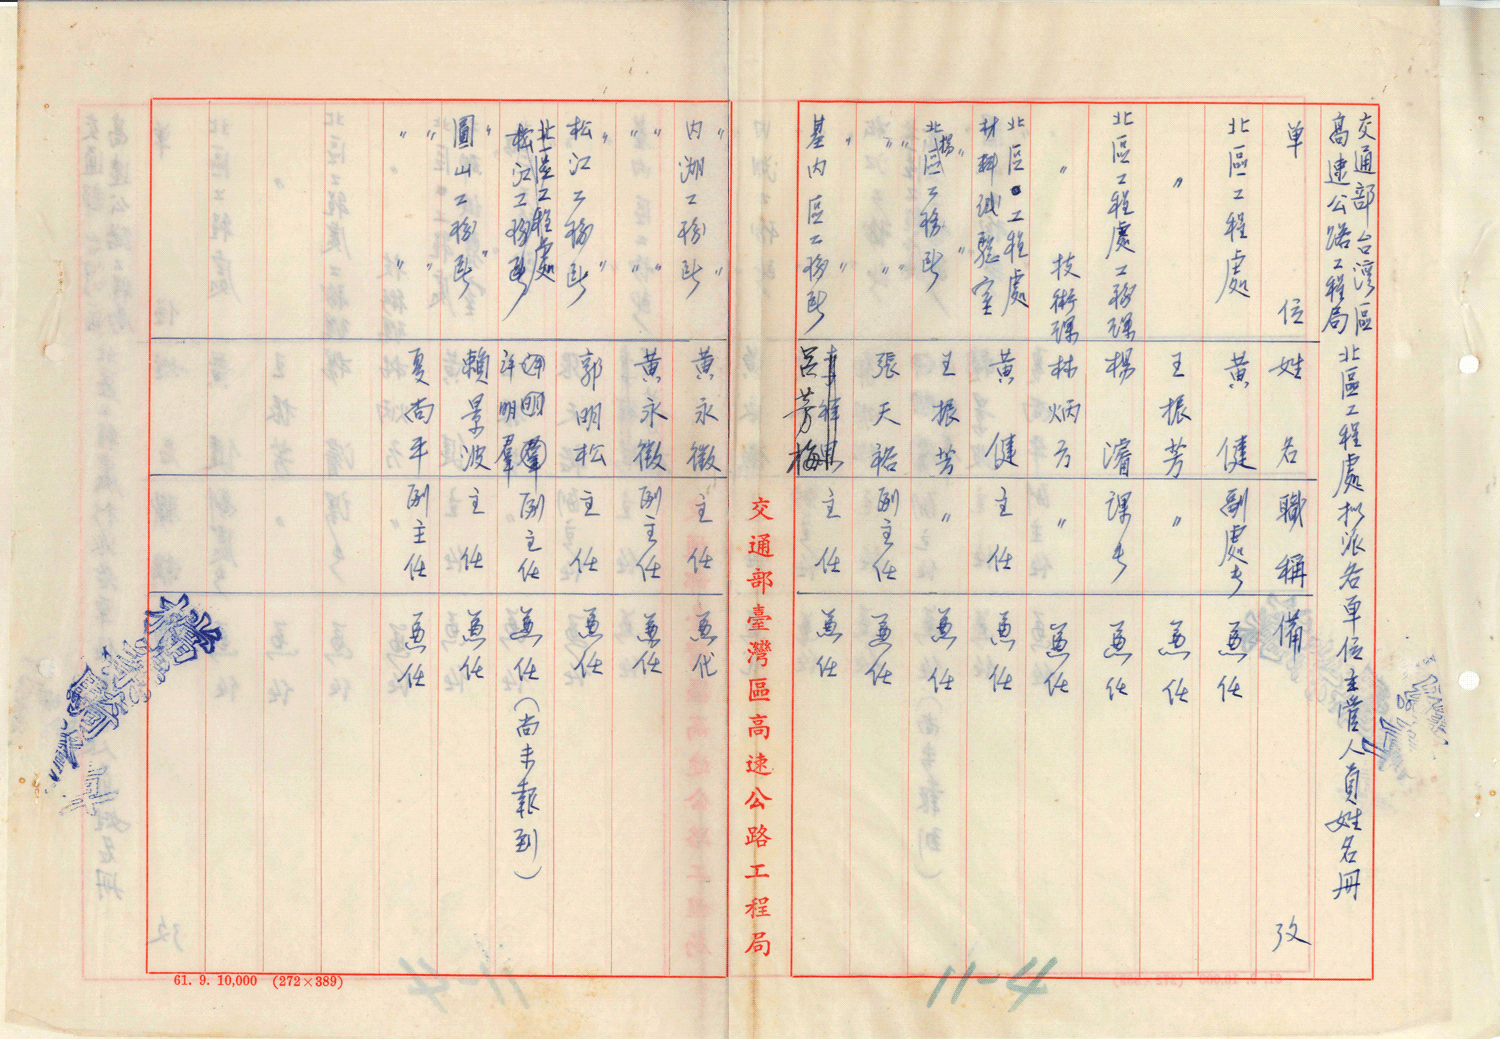 交通部台灣區
高速公路工程局 北區工程處擬派各單位主管人員姓名冊
單位 姓名 職稱 備攷
北區工程處 黃健 副處長 兼任
〃 王振芳 〃 兼任
北區工程處工務課 楊濬 課長 兼任
〃 技術課 林炳方 〃 兼任
北區工程處
材料試驗室 黃健 主任 兼任
北區工務所 王振芳 〃 兼任
〃 〃 張天裕 副主任 兼任
基內區工務所 呂芳梅 主任 兼任
內湖工務所 黃永徵 主任 兼代
〃 〃 黃永徵 副主任 兼任
松江工務所 郭明松 主任 兼任
北區工程處
松江工務所 許明群 副主任 兼任(尚未報到)
圓山工務所 賴景波 主任 兼任
〃 〃 夏尚平 副主任 兼任
交通部臺灣區高速公路工程局
61. 9. 10,000 (272×389)
11-4